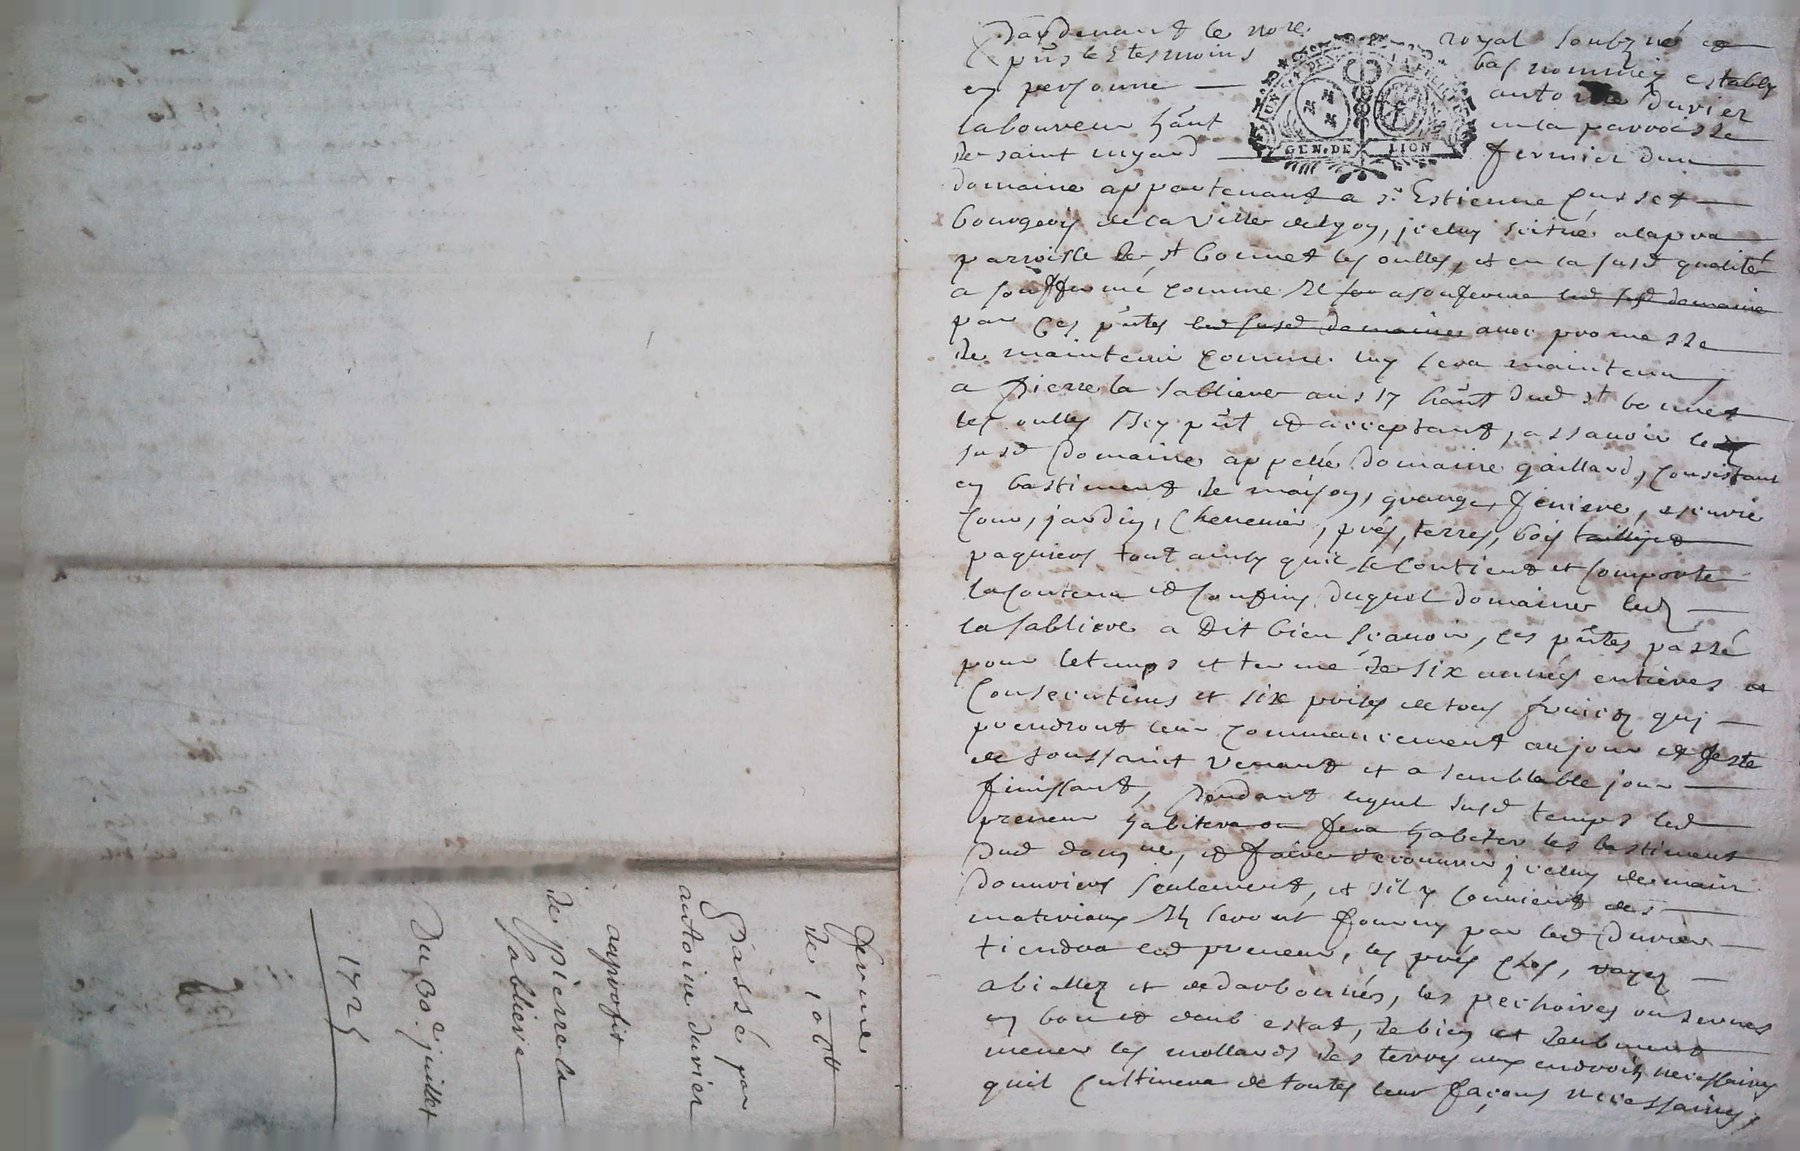 Pardevant le nore royal soubzné et
pñs les tesmoins bas nommés estably
en personne antoine duvier
laboureur hãnt en la parroisse
de saint fermier dun
domaine appartenant a sr Estienne
bourgeois de la Ville de lyon, jceluy scitué a la
parroisse de st bonnet les oulles, et en la susd qualité
a souffermé comme Il asouferme led susd domaine
par Ces pñtes led susd domaine avec promesse
de maintenir comme luy sera maintenu
a pierre la sabliere aussy hãnt dud st bonnet
les oulles Icy pñt et acceptant, assavoir le
susd domaine appellé domaine gaillard, Consistant
en bastiment de maison, grange, feniere, escurie
Cour, jardin, Chenevier, prés, terres, bois taillis et
paquiers tout ainsy quil se Contient et Comporte
la Contenu et Confins duquel domaine led
la sabliere a dit bien scavoir, les pñtes passé
pour le temps et terme de six années entieres et
Consecutives et six prises de tous fruicts qui
prendront leur commancement au jour et feste
de toussaint venant et a semblable jour
finissant, pendant lequel susd temps led
preneur habitera ou fera habiter les bastiment
dud domne, et faire recouvrir jceluy de main
douvriers seulement, et sil y Convient des
materiaux Ils seront fournys par led duvier
tiendra led preneur, les prés Clos, rayez
et dedarbonnés, les pechoires ou serves
en bon et deub estat, de bien et deubment
mener les mollards des terres aux endroits necessaires
quil Cultivera de toutes leur façons necessaires,
ferme
de 100tt
Passé par
antoine duvier
auproffit
de pierre la
Sabliere
Du 30e juillet
1725
GEN. DE LION